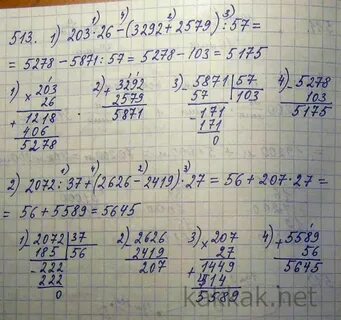 513. 1) 203·26-(3292+2579):57=
=5278-5871:57=5278-103=5175
1) ×203
26
+1218
406
5278
2) +3292
2579
5871
3) -5871 | 57
57 | 103
-171
171
0
4) -5278
103
5175
2) 2072:37+(2626-2419)·27=56+207·27=
=56+5589=5645
1) 2072 | 37
185 | 56
-222
222
0
2) 2626
2419
207
3) ×207
27
+1449
414
5589
4) +5589
56
5645